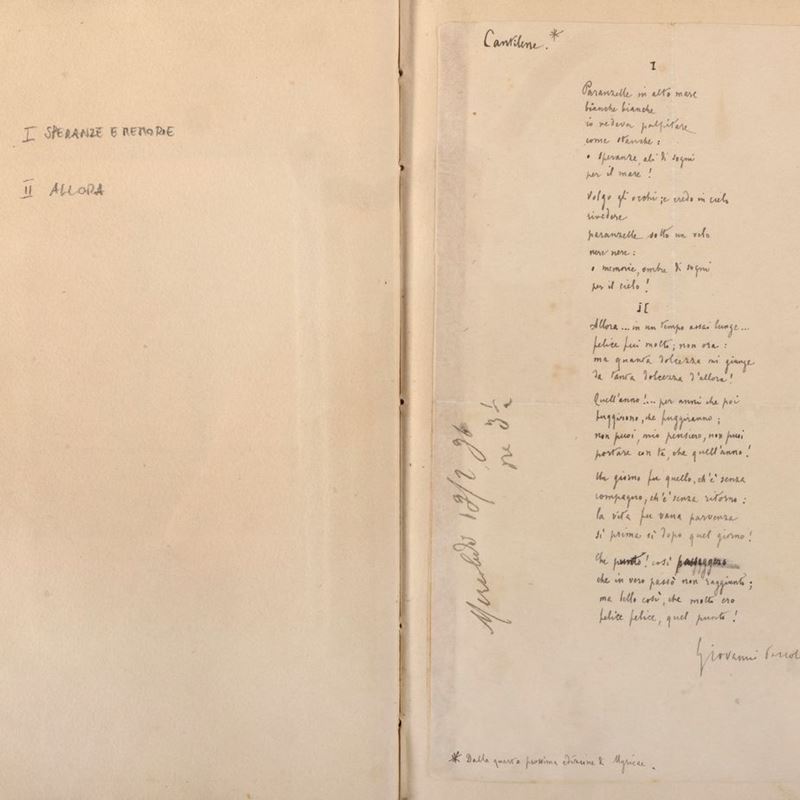 I SPERANZE E MEMORIE
II ALLORA
Cantilene.*
I
Paranzelle in alto mare
bianche bianche
io vedeva palpitare
come stanche:
o speranze, ali di sogni
per il mare!
Volgo gli occhi; e credo in cielo
rivedere
paranzelle sotto un velo
nere nere:
o memorie, ombre di sogni
per il cielo!
II
Allora... in un tempo assai lunge...
felice fui molto; non ora:
ma quanta dolcezza mi giunge
da tanta dolcezza d'allora!
Quell'anno!... per anni che poi
fuggirono, che fuggiranno;
non puoi, mio pensiero, non puoi
portare con te, che quell'anno!
Un giorno fu quello, ch'è senza
compagno, ch'è senza ritorno:
la vita fu vana parvenza
sì prima sì dopo quel giorno!
Un punto! così passeggero
che in vero passò non raggiunto;
ma bello così, che molto ero
felice felice, quel punto!
Giovanni Pascol
Mercoledì 12/2 96
ore 3 1/2
* Dalla quarta prossima edizione di Myricae.